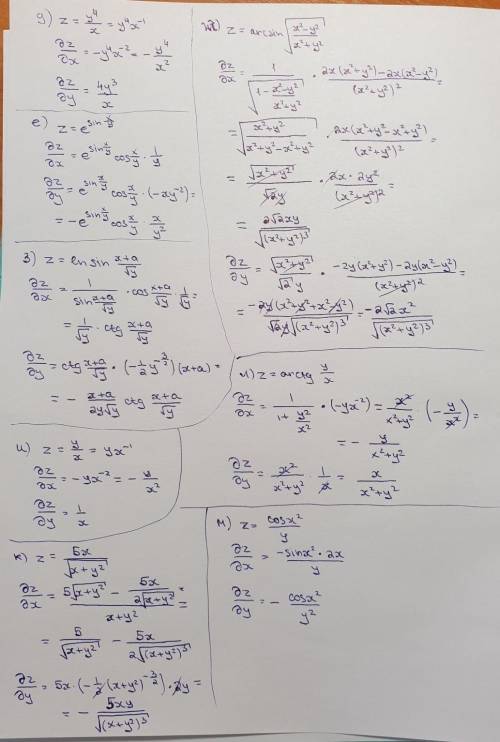 д) z = y⁴/x = y⁴x⁻¹
∂z/∂x = -y⁴x⁻² = - y⁴/x²
∂z/∂y = 4y³/x
е) z = e^(sin x/y)
∂z/∂x = e^(sin x/y) cos x/y · 1/y
∂z/∂y = e^(sin x/y) cos x/y · (-xy⁻²) =
= -e^(sin x/y) cos x/y · x/y²
з) z = ln sin (x+a)/√y
∂z/∂x = 1/(sin (x+a)/√y) · cos (x+a)/√y · 1/√y =
= 1/√y · ctg (x+a)/√y
∂z/∂y = ctg (x+a)/√y · (-½ y^(-3/2))(x+a) =
= - (x+a)/(2y√y) ctg (x+a)/√y
и) z = y/x = yx⁻¹
∂z/∂x = -yx⁻² = - y/x²
∂z/∂y = 1/x
к) z = 5x/√(x+y²)
∂z/∂x = (5√(x+y²) - 5x/(2√(x+y²)))/(x+y²) =
= 5/√(x+y²) - 5x/(2√((x+y²)³))
∂z/∂y = 5x · (-½ (x+y²)^(-3/2)) · 2y =
= - 5xy/√((x+y²)³)
ж) z = arcsin √((x²-y²)/(x²+y²))
∂z/∂x = 1/√(1 - (x²-y²)/(x²+y²)) · (2x(x²+y²)-2x(x²-y²))/(x²+y²)² =
= √(x²+y²)/√(x²+y²-x²+y²) · 2x(x²+y²-x²+y²)/(x²+y²)² =
= √(x²+y²)/(√2y) · 2x·2y²/(x²+y²)² =
= 2√2xy/√((x²+y²)³)
∂z/∂y = √(x²+y²)/(√2 y) · (-2y(x²+y²)-2y(x²-y²))/(x²+y²)² =
= -2y(x²+y²+x²-y²)/(√2y√((x²+y²)³)) = -2√2x²/√((x²+y²)³)
л) z = arctg y/x
∂z/∂x = 1/(1+ y²/x²) · (-yx⁻²) = x²/(x²+y²) (- y/x²) =
= - y/(x²+y²)
∂z/∂y = x²/(x²+y²) · 1/x = x/(x²+y²)
м) z = cosx²/y
∂z/∂x = -sinx²·2x/y
∂z/∂y = - cosx²/y²